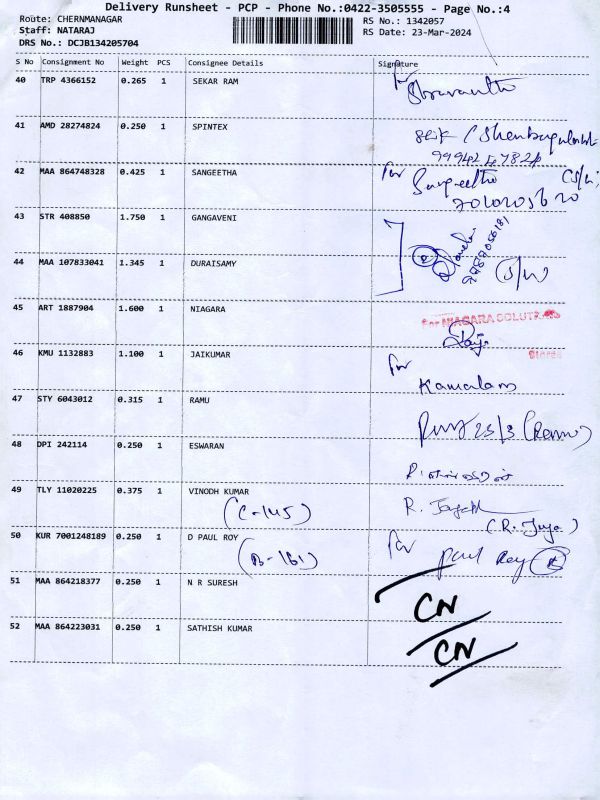 Delivery Runsheet - PCP - Phone No.:0422-3505555 - Page No.:4
Route: CHERNMANAGAR RS No.: 1342057
Staff: NATARAJ RS Date: 23-Mar-2024
DRS No.: DCJB134205704
S No Consignment No Weight PCS Consignee Details Signature
40 TRP 4366152 0.265 1 SEKAR RAM
41 AMD 28274824 0.250 1 SPINTEX
42 MAA 864748328 0.425 1 SANGEETHA for Sangeetha
43 STR 408850 1.750 1 GANGAVENI
44 MAA 107833041 1.345 1 DURAISAMY (S/W)
45 ART 1887904 1.600 1 NIAGARA For NIAGARA SOLUTIONS
Stores
46 KMU 1132883 1.100 1 JAIKUMAR for
Kamalam
47 STY 6043012 0.315 1 RAMU 23/3 (Ramu)
48 DPI 242114 0.250 1 ESWARAN
49 TLY 11020225 0.375 1 VINODH KUMAR
(C-145)
50 KUR 7001248189 0.250 1 D PAUL ROY for Paul Roy
(B-161)
51 MAA 864218377 0.250 1 N R SURESH CN
52 MAA 864223031 0.250 1 SATHISH KUMAR CN